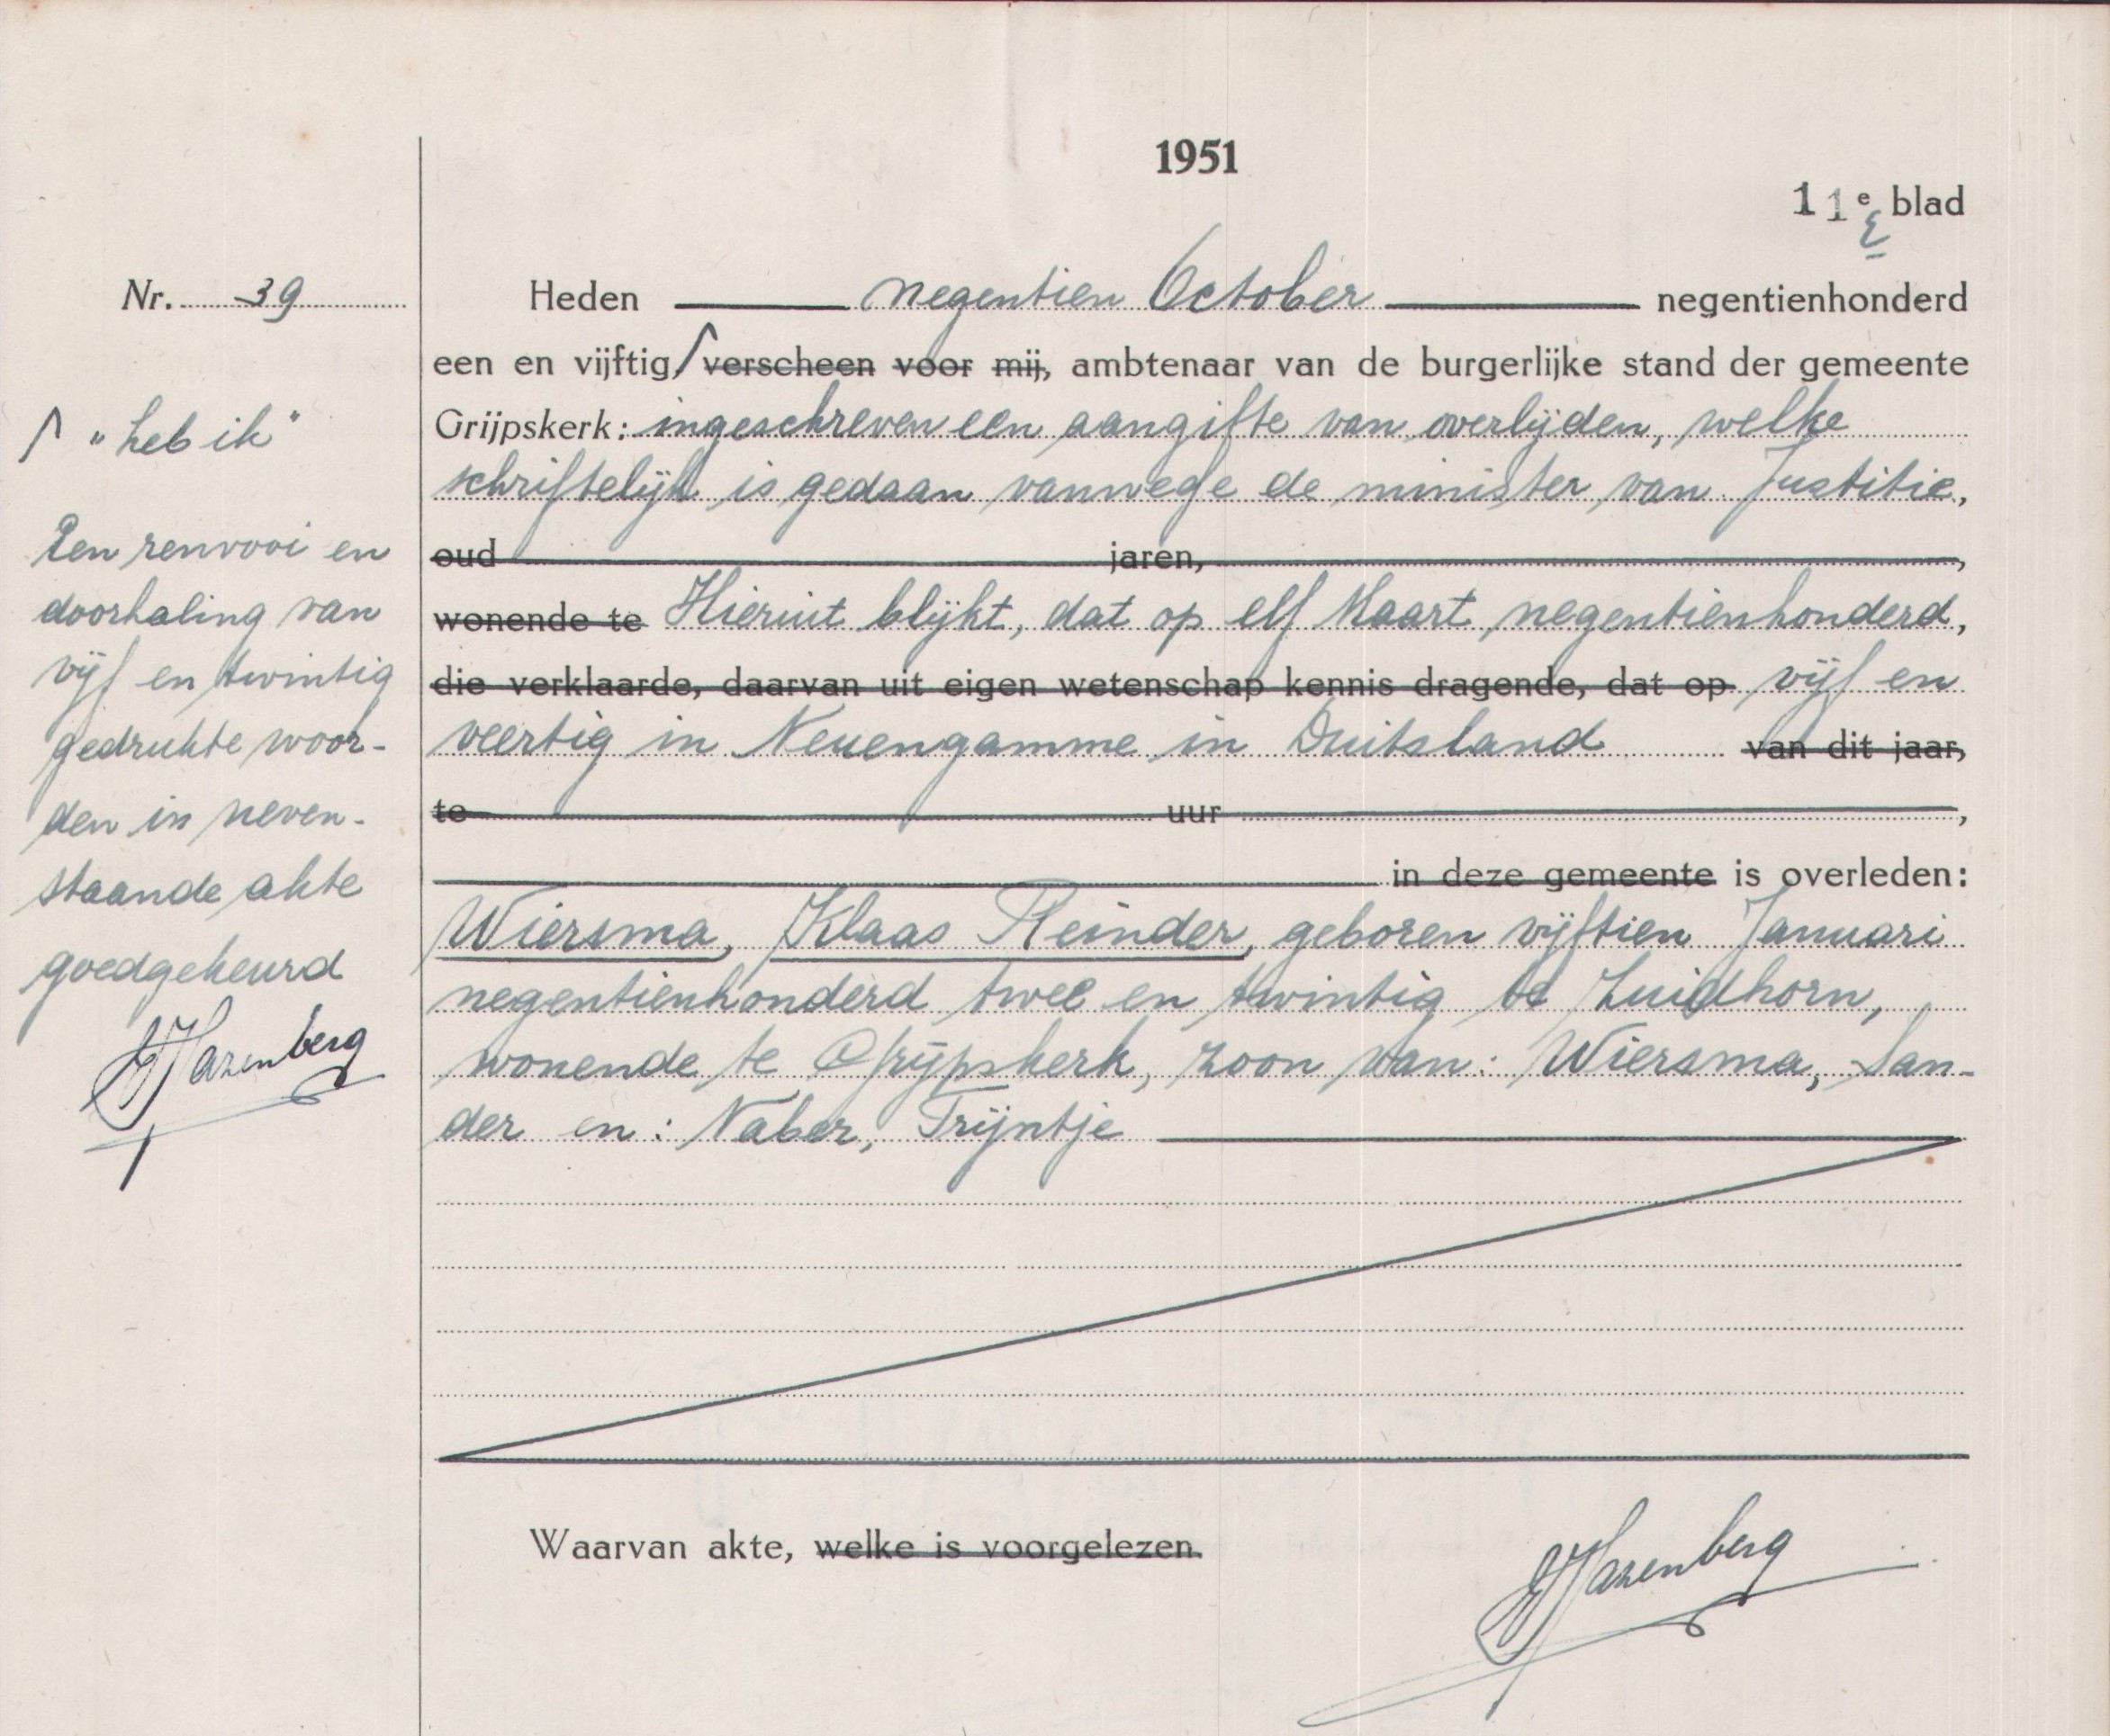 1951
11e blad
Nr. 39
Heden negentien October negentienhonderd
een en vijftig, verscheen voor mij, ambtenaar van de burgerlijke stand der gemeente
Grijpskerk: ingeschreven een aangifte van overlijden, welke
schriftelijk is gedaan vanwege de minister van Justitie,
oud jaren,
wonende te Hieruit blijkt, dat op elf Maart negentienhonderd,
die verklaarde, daarvan uit eigen wetenschap kennis dragende, dat op vijf en
veertig in Neuengamme in Duitsland van dit jaar,
te uur,
in deze gemeente is overleden:
Wiersma, Klaas Reinder, geboren vijftien Januari
negentienhonderd twee en twintig te Zuidhorn,
wonende te Grijpskerk, zoon van: Wiersma, San-
der en: Naber, Trijntje
Waarvan akte, welke is voorgelezen.
Hazenberg
"heb ik"
Een renvooi en
doorhaling van
vijf en twintig
gedrukte woor-
den in neven-
staande akte
goedgekeurd
Hazenberg